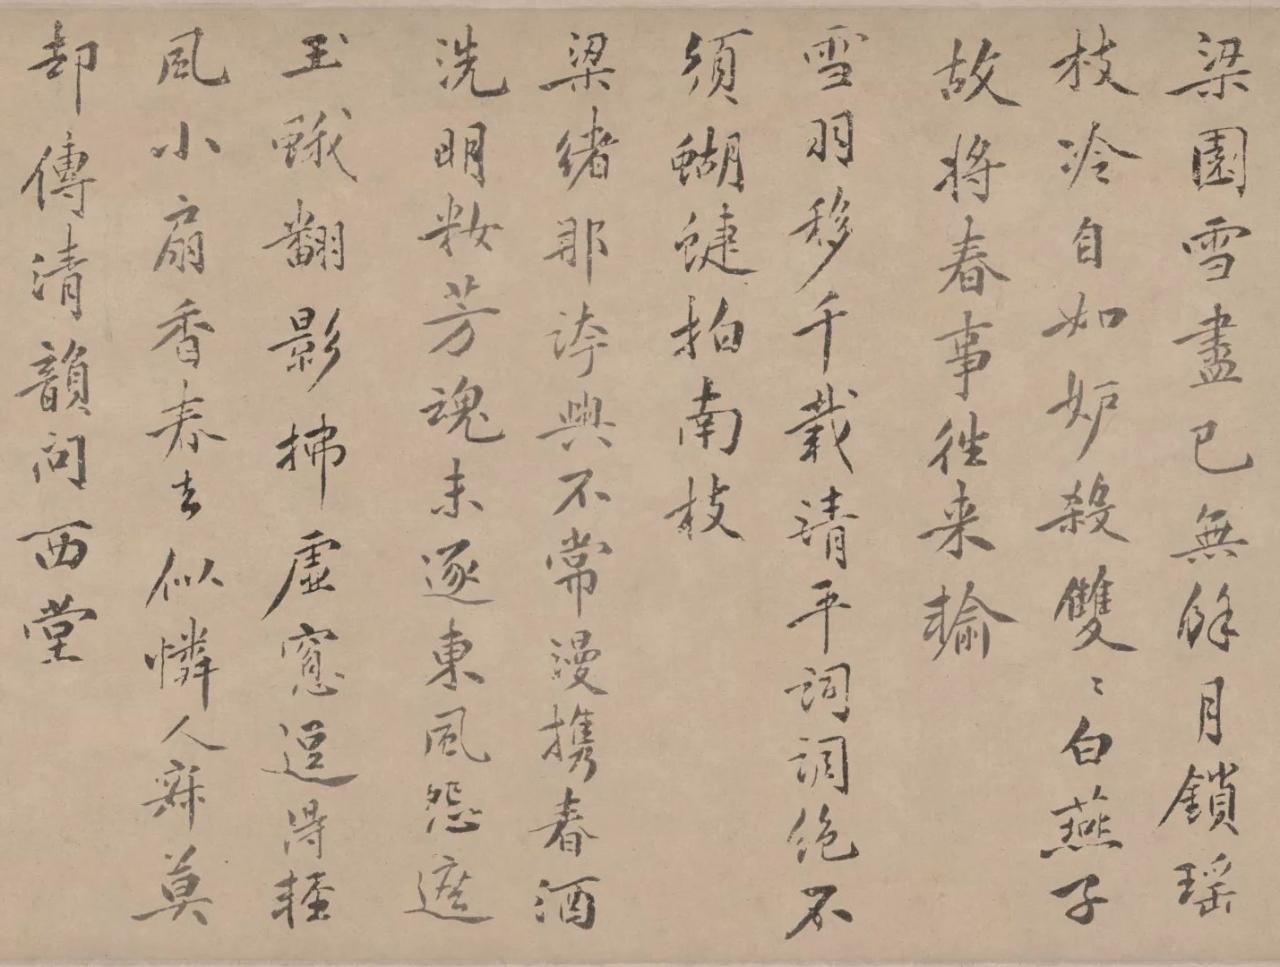 梁園雪盡已無餘月鎖瑶
枝冷自如妒殺雙〻白燕子
故將春事徃来輸
雪羽移千載清平詞調絶不
須蝴蝶拍南枝
梁緒那誇興不常漫携春酒
洗明粧芳魂未逐東風怨遮
玉蛾翻影拂虛窻逗得輕
風小扇香春去似憐人寐莫
却傳清韻問西堂